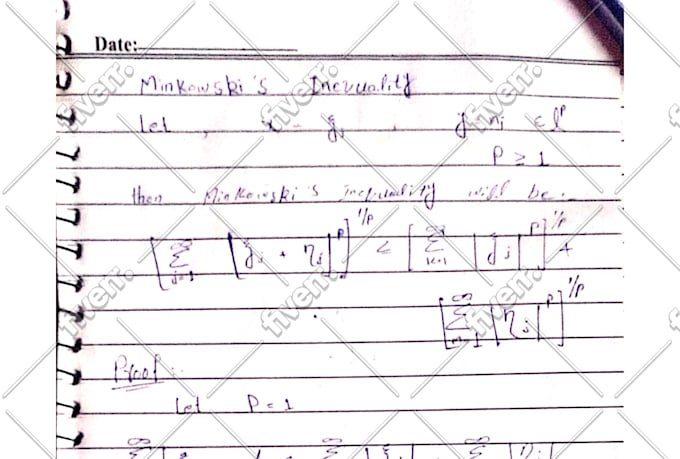 Date:
Minkowski's Inequality
Let , x = ξj , y = ηj ∈ l^p
P ≥ 1
then Minkowski's inequality will be.
[∑_{j=1}^∞ |ξj + ηj|^p]^{1/p} ≤ [∑_{k=1}^∞ |ξj|^p]^{1/p} +
[∑_{m=1}^∞ |ηj|^p]^{1/p}
Proof :-
Let P = 1
fiverr.